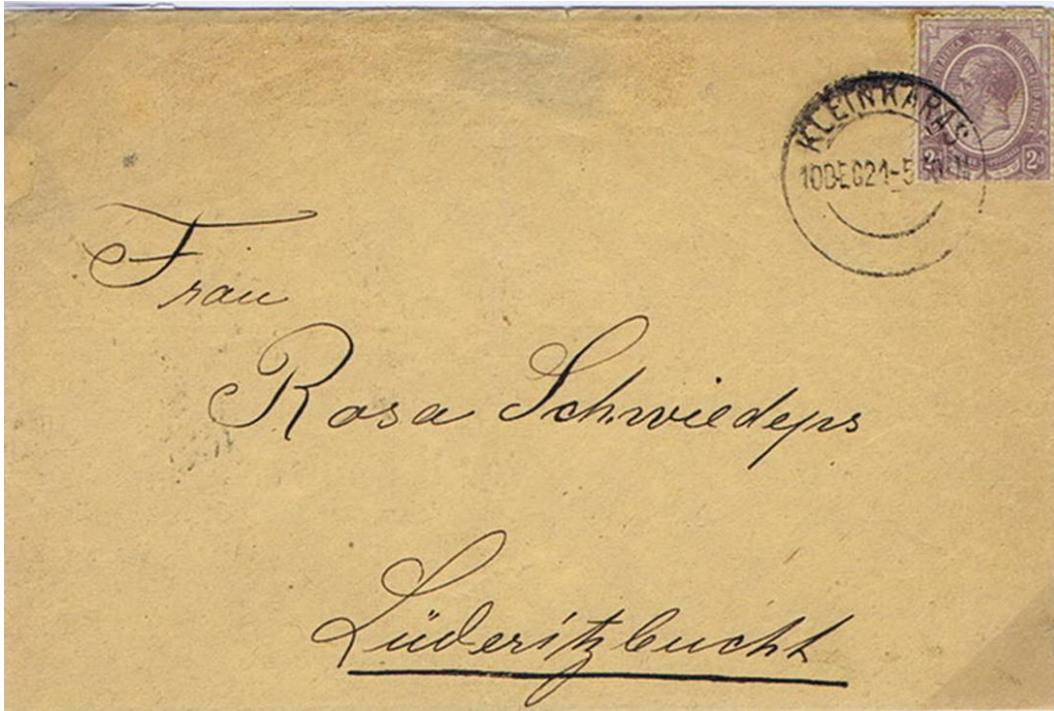 KLEINKARAS
10 DEC 21-5
2d 2d
Frau
Rosa Schwiedeps
Lüderitzbucht